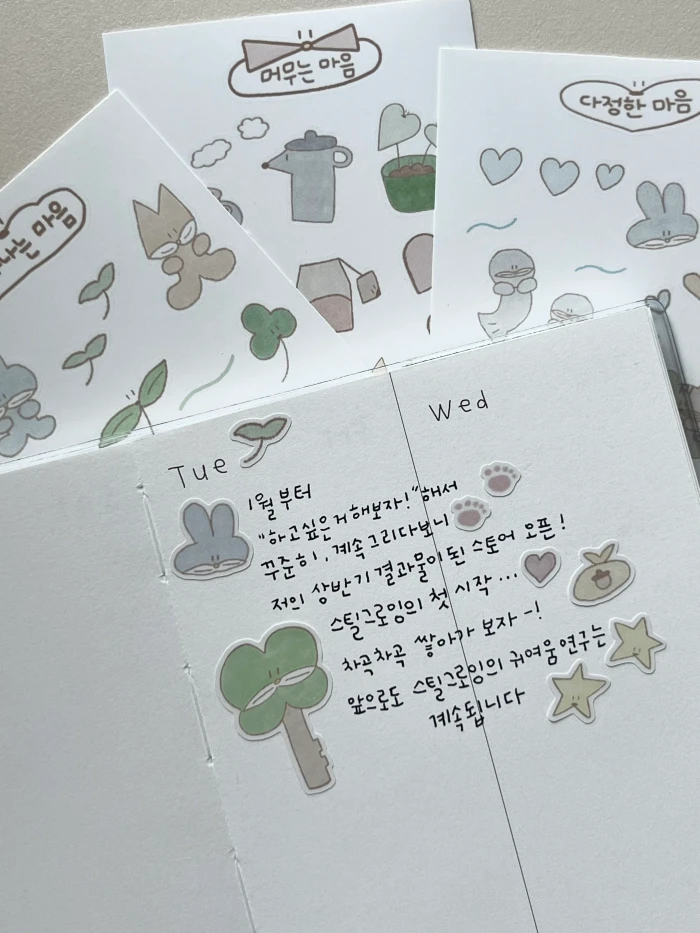 머무는 마음
다정한 마음
마음
Tue
Wed
1월부터
"하고싶은거해보자!" 해서
꾸준히, 계속그리다보니
저의 상반기결과물이된 스토어 오픈!
스틸그로잉의 첫 시작...
차곡차곡 쌓아가 보자-!
앞으로도 스틸그로잉의 귀여움연구는
계속됩니다